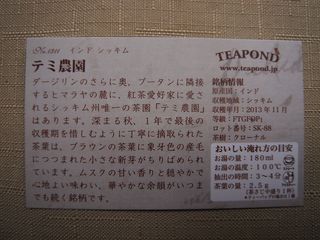 No.1311 インド シッキム
テミ農園
ダージリンのさらに奥、ブータンに隣接
するヒマラヤの麓に、紅茶愛好家に愛さ
れるシッキム州唯一の茶園「テミ農園」
はあります。深まる秋、1年で最後の
収穫期を惜しむように丁寧に摘採られた
茶葉は、ブラウンの茶葉に象牙色の産毛
につつまれた小さな新芽がちりばめられ
ています。ムスクの甘い香りと穏やかで
心地よい味わい、華やかな余韻がいつま
でも続く銘柄です。
TEAPOND
www.teapond.jp
銘柄情報
原産国：インド
収穫地域：シッキム
収穫時期：2013年11月
等級：FTGFOP1
ロット番号：SK-88
茶樹：クローナル
おいしい淹れ方の目安
お湯の量：180ml
お湯の温度：100℃
抽出の時間：3〜4分
茶葉の量：2.5g
(茶さじ中盛り1杯)